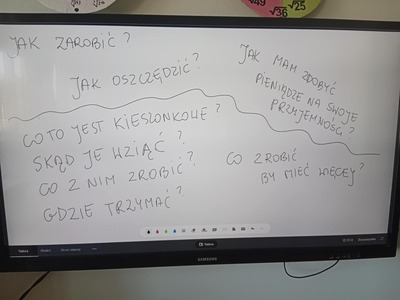 √49
√25
√36
JAK ZAROBIĆ?
JAK OSZCZĘDZIĆ?
JAK MAM ZDOBYĆ
PIENIĄDZE NA SWOJE
PRZYJEMNOŚCI?
CO TO JEST KIESZONKOWE?
SKĄD JE WZIĄĆ?
CO Z NIM ZROBIĆ?
GDZIE TRZYMAĆ?
CO ZROBIĆ
BY MIEĆ WIĘCEJ?
SAMSUNG